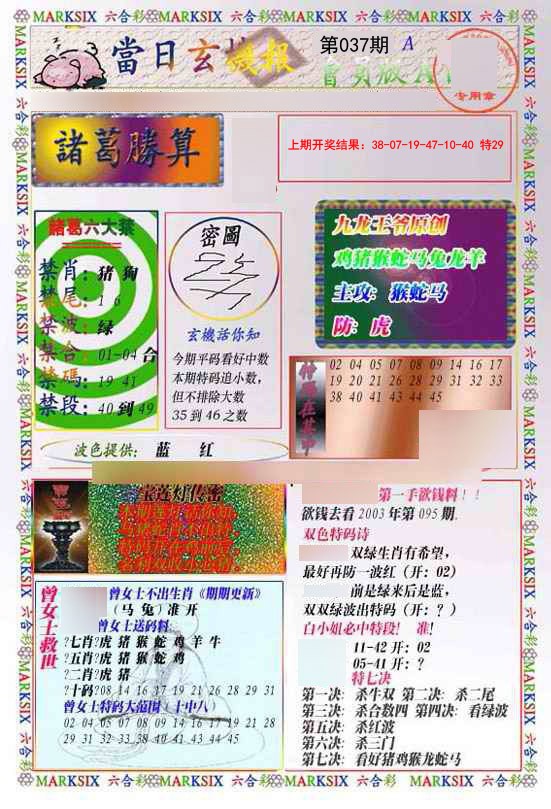 MARKSIX 六合彩 MARKSIX 六合彩 MARKSIX 六合彩 MARKSIX 六合彩
當日玄機報
第037期 A
會員版A
专用章
諸葛勝算
上期开奖结果：38-07-19-47-10-40 特29
諸葛六大禁
禁肖：猪 狗
禁尾：1 6
禁波：绿
禁合：01-04 合
禁碼：19 41
禁段：40 到 49
密圖
玄機活你知
今期平码看好中数
本期特码追小数，
但不排除大数
35 到 46 之数
九龙王爷原创
鸡猪猴蛇马兔龙羊
主攻：猴蛇马
防：虎
02 04 05 07 08 09 14 16 17
19 20 21 26 28 29 31 32 33
38 40 41 43 44 45
波色提供： 蓝 红
宝莲灯传密
第一手欲钱料！！
欲钱去看 2003 年第 095 期.
双色特码诗
双绿生肖有希望，
最好再防一波红（开：02）
前是绿来后是蓝，
双双绿波出特码（开：？）
白小姐必中特段！ 准!
11-42 开：02
05-41 开：？
特七决
第一决：杀牛双 第二决：杀二尾
第三决：杀合数四 第四决：看绿波
第五决：杀红波
第六决：杀三门
第七决：看好猪鸡猴龙蛇马
曾女士救世
曾女士不出生肖《期期更新》
（马 兔）准 开
曾女士送码料
?七肖?虎 猪 猴 蛇 鸡 羊 牛
?五肖?虎 猪 猴 蛇 鸡
?二肖?虎 猪
?十码?08 14 16 17 19 21 26 28 29 31
曾女士特码大范围（十中八）
02 04 05 07 08 09 14 16 17 19 21 28
29 31 32 33 38 40 41 43 44 45
MARKSIX 六合彩 MARKSIX 六合彩 MARKSIX 六合彩 MARKSIX 六合彩